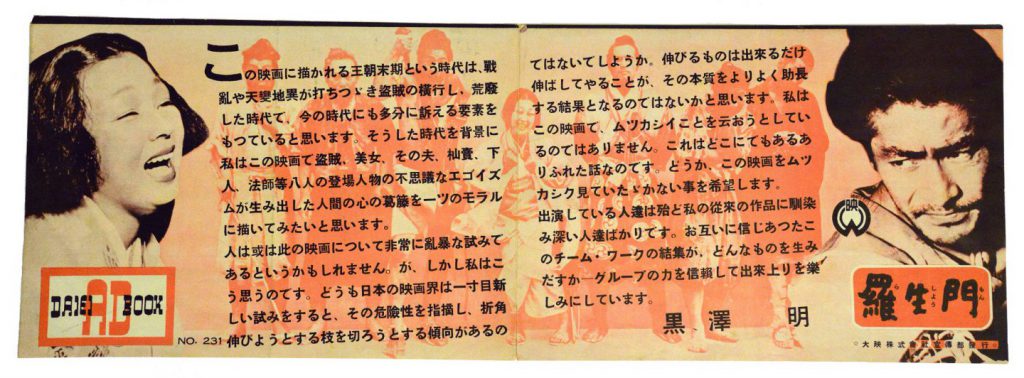 この映画に描かれる王朝末期という時代は、戰
亂や天變地異が打ちつゞき盗賊の横行し、荒廢
した時代て、今の時代にも多分に訴える要素を
もつていると思います。そうした時代を背景に
私はこの映画て盗賊、美女、その夫、杣賣、下
人、法師等八人の登場人物の不思議なエゴイズ
ムが生み出した人間の心の葛藤を一ツのモラル
に描いてみたいと思います。
人は或は此の映画について非常に亂暴な試みて
あるというかもしれません。が、しかし私はこ
う思うのです。どうも日本の映画界は一寸目新
しい試みをすると、その危険性を指摘し、折角
伸びようとする枝を切ろうとする傾向があるの
てはないてしようか。伸びるものは出來るだけ
伸ばしてやることが、その本質をよりよく助長
する結果となるのてはないかと思います。私は
この映画て、ムツカシイことを云おうとしてい
るのてはありません。これはどこにてもあるあ
りふれた話なのです。どうか、この映画をムツ
カシク見ていたゞかない事を希望します。
出演している人達は殆ど私の從來の作品に馴染
み深い人達ばかりです。お互いに信じあつたこ
のチーム・ワークの結集が、どんなものを生み
だすか―グループの力を信頼して出來上りを樂
しみにしています。
黒澤 明
DAIEI AD BOOK
NO. 231
映
羅生門
ら しよう もん
○大映株式會社宣傳部發行○